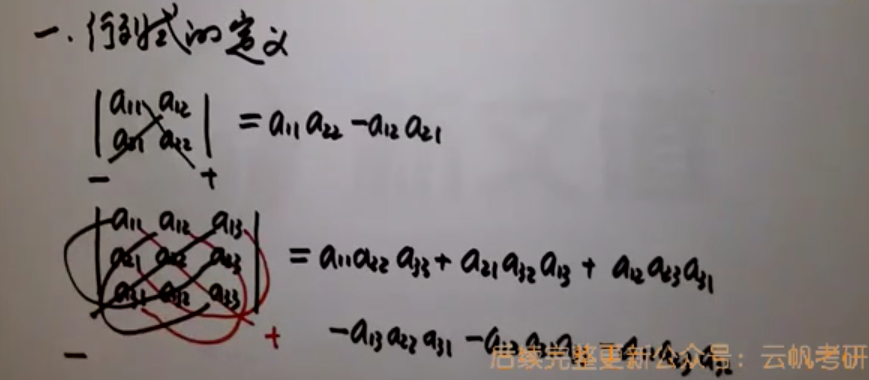 一. 行列式的定义
| a11 a12 |
| a21 a22 | = a11 a22 - a12 a21
- +
| a11 a12 a13 |
| a21 a22 a23 | = a11 a22 a33 + a21 a32 a13 + a12 a23 a31
| a31 a32 a33 |
- + - a13 a22 a31 - a12 a21
后续完整更新公众号：云帆考研